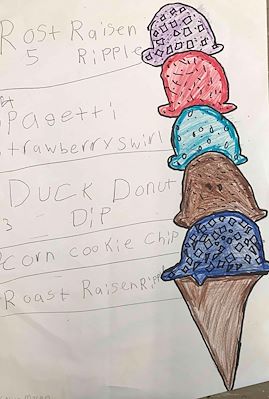 Rost Raisen
5 Ripple
Pagetti
trawberry swirl
Duck Donut
3 Dip
corn cookie chip
Roast Raisen Ripple